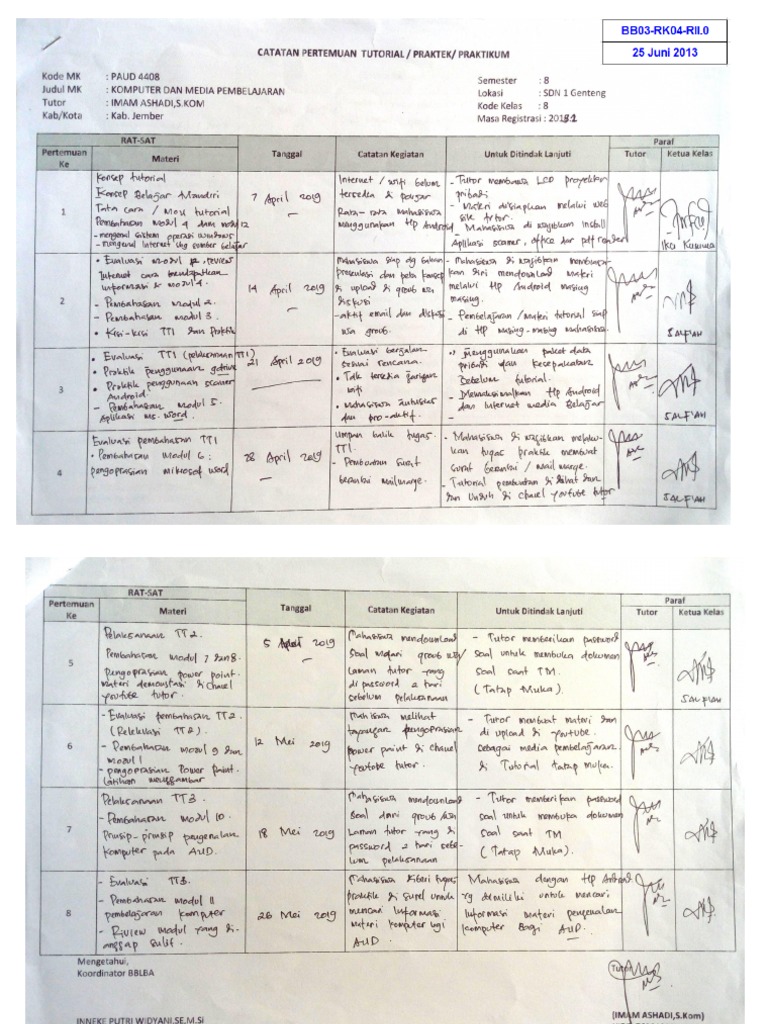 BB03-RK04-RII.0
25 Juni 2013
CATATAN PERTEMUAN TUTORIAL / PRAKTEK/ PRAKTIKUM
Kode MK : PAUD 4408
Judul MK : KOMPUTER DAN MEDIA PEMBELAJARAN
Tutor : IMAM ASHADI,S.KOM
Kab/Kota : Kab. Jember
Semester : 8
Lokasi : SDN 1 Genteng
Kode Kelas : 8
Masa Registrasi :
Pertemuan Ke
RAT-SAT
Materi
Tanggal
Catatan Kegiatan
Untuk Ditindak Lanjuti
Paraf
Tutor
Ketua Kelas
1
Konsep tutorial
Konsep Belajar Mandiri
Tata cara / tutorial
Pembahasan Modul 4 dan modul 12
- mengenal sistem operasi windows
- mengenal Internet sbg sumber belajar
7 April 2019
Internet / wifi belum
tersedia di
Rata-rata Mahasiswa
menggunakan Hp Android
- Tutor membawa LCD proyektor
pribadi
- Materi disiapkan melalui web
site tutor.
- Mahasiswa di wajibkan install
Aplikasi scanner, office dan pdf reader
Ika Kusuma
2
• Evaluasi modul 12, review
Internet cara mendapatkan
informasi & modul 4
- Pembahasan modul 2.
- Pembahasan modul 3.
• Kisi-kisi TT1 dan Praktik
14 April 2019
Mahasiswa siap dg bahan
presentasi dan peta konsep
di upload di group wa
diskusi
- aktif email dan diskusi
wa group.
- Mahasiswa di wajibkan
kan diri mendownload materi
melalui HP Android masing
masing.
- Pembelajaran / Materi tutorial siap
di Hp masing-masing mahasiswa
SALFIAH
3
• Evaluasi TT1 (pelaksanaan TT1)
• Praktik penggunaan gdrive
• Praktik penggunaan scanner
Android
- Pembahasan modul 5.
Aplikasi ms. Word.
21 April 2019
• Evaluasi berjalan
sesuai rencana.
• Tdk tersedia jaringan
wifi
• Mahasiswa antusias
dan pro-aktif.
• menggunakan paket data
pribadi dan kesepakatan
Sebelum tutorial.
- Memaksimalkan Hp Android
dan Internet media Belajar
SALFIAH
4
Evaluasi pembahasan TT1
• Pembahasan modul 6 :
pengoprasian mikrosof word
28 April 2019
Umpan balik tugas.
TT1.
- Pembuatan Surat
berantai mailmarge.
- Mahasiswa di wajibkan melaku-
kan tugas praktik membuat
surat berantai / mail marge.
- Tutorial pembuatan di lihat dan
dan unduh di chanel youtube tutor
SALFIAH
Pertemuan Ke
RAT-SAT
Materi
Tanggal
Catatan Kegiatan
Untuk Ditindak Lanjuti
Paraf
Tutor
Ketua Kelas
5
Pelaksanaan TT2.
Pembahasan modul 7 dan 8.
Pengoprasian power point.
materi demonstrasi di chanel
youtube tutor.
5 2019
Mahasiswa mendownload
Soal melalui group wa/
Laman tutor yang
di password 2 hari
sebelum pelaksanaan
- Tutor memberikan password
soal untuk membuka dokumen
soal saat TM
(Tatap Muka)
SALFIAH
6
- Evaluasi pembahasan TT2.
(Refleksi TT2).
- Pembahasan modul 9 dan
modul 1
- pengoprasian Power Point.
latihan menggambar
12 Mei 2019
Mahasiswa melihat
tayangan pengoprasian
power point di chanel
youtube tutor.
- Tutor membuat materi dan
di upload di youtube.
sebagai media pembelajaran
di Tutorial tatap muka.
7
Pelaksanaan TT3.
- Pembahasan modul 10.
Prinsip-prinsip pengenalan
Komputer pada AUD.
18 Mei 2019
Mahasiswa mendownload
Soal dari group wa
Laman tutor yang di
password 2 hari sebe-
lum pelaksanaan
- Tutor memberikan password
soal untuk membuka dokumen
soal saat TM
(Tatap Muka).
8
- Evaluasi TT3.
- Pembahasan modul 11
pembelajaran komputer
- Riview modul yang di-
anggap sulit.
26 Mei 2019
Mahasiswa diberi tugas
praktik di surel untuk
mencari Informasi
materi komputer bagi
AUD.
Mahasiswa dengan Hp Android
yg dimiliki untuk mencari
Informasi materi pengenalan
komputer Bagi AUD.
Mengetahui,
Koordinator BBLBA
Tutor
INNEKE PUTRI WIDYANI,SE,M.Si
(IMAM ASHADI,S.Kom)